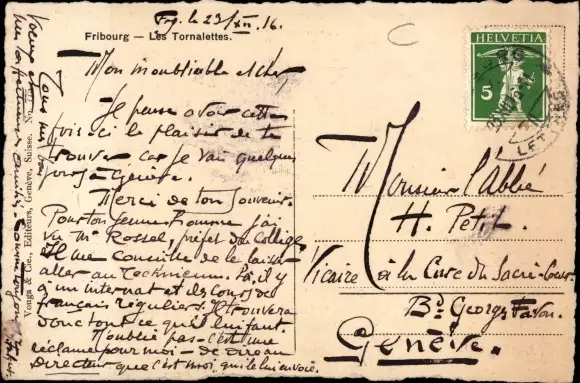 Frg. le 23/XII. 16.
Fribourg — Les Tornalettes.
Mon inoubliable et cher
Je pense avoir cette
fois-ci le plaisir de te
trouver car je vai quelques
jours à Genève.
Merci de ton souvenir.
Pour ton jeune homme j'ai
vu Mr Rossel, préfet du Collège
Il me conseille de le laisser
aller au Technicum. Là, il y
a un internat et des cours de
français réguliers. Il trouvera
donc tout ce qu'il lui faut.
N'oublie pas - c'est une
réclame pour moi - de dire au
Directeur que c'est moi qui te l'ai envoie.
Vouga & Cie., Editeurs, Genève, Suisse.
HELVETIA
5
Monsieur l'Abbé
H. Petit.
Vicaire à la Cure du Sacré-Coeur
Bd. Georges Favon.
Genève.